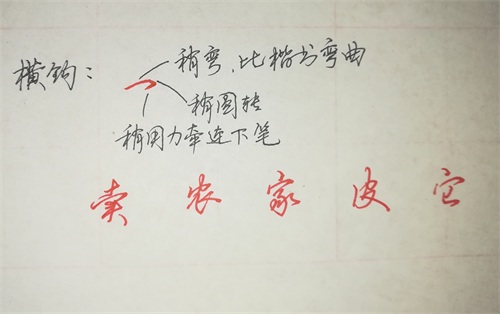 稍弯,比楷书弯曲
横钩:
稍圆转
稍用力牵连下笔
卖 农 家 皮 它